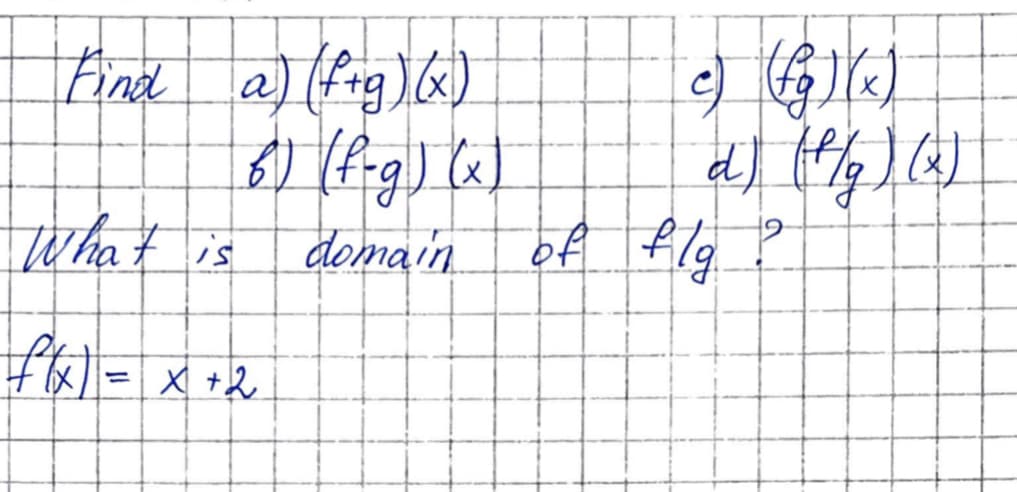 Find a) (f+g)(x) c) (fg)(x)
b) (f-g)(x) d) (f/g)(x)
What is domain of f/g?
f(x) = x+2